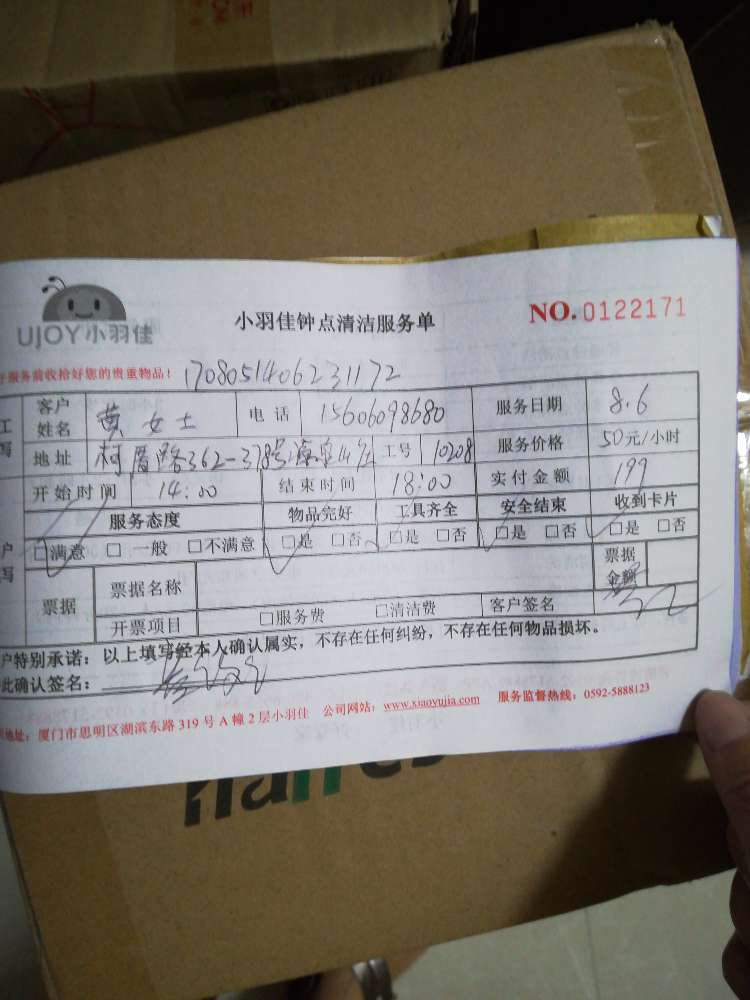 UJOY小羽佳
小羽佳钟点清洁服务单
NO.0122171
服务前收拾好您的贵重物品!
1708051406231172
客户姓名 黄女士 电话 15606098680 服务日期 8.6
地址 柯厝路362-378号 工号 10208 服务价格 50元/小时
开始时间 14:00 结束时间 18:00 实付金额 199
服务态度 物品完好 工具齐全 安全结束 收到卡片
□满意 □一般 □不满意 □是 □否 □是 □否 □是 □否 □是 □否
票据 票据名称 票据金额
开票项目 □服务费 □清洁费 客户签名
户特别承诺:以上填写经本人确认属实,不存在任何纠纷,不存在任何物品损坏。
此确认签名:
地址:厦门市思明区湖滨东路319号A幢2层小羽佳 公司网站:www.xiaoyujia.com 服务监督热线:0592-5888123